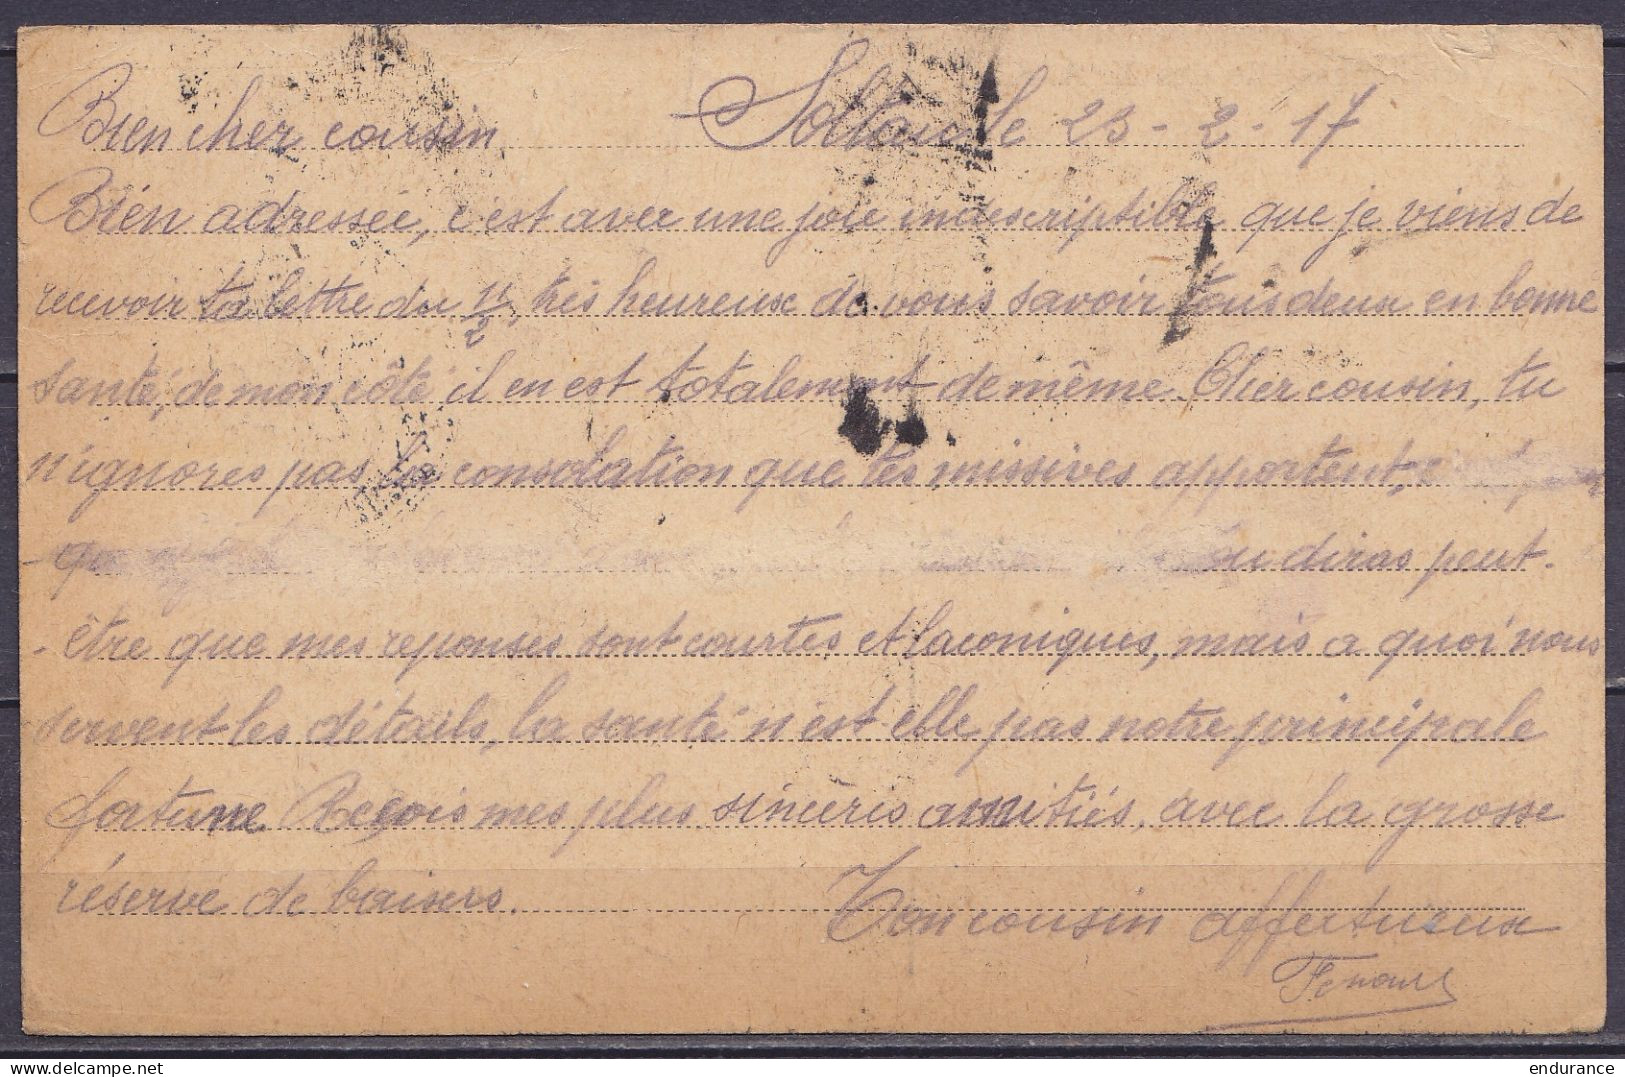 Bien cher cousin. Soltau le 23-2-17
Bien adressée, c'est avec une joie indescriptible que je viens de
recevoir ta lettre du 11/2, très heureux de vous savoir tous deux en bonne
santé, de mon côté il en est totalement de même. Cher cousin, tu
n'ignores pas la consolation que tes missives apportent,
diras peut-
-être que mes réponses sont courtes et laconiques, mais a quoi nous
servent les détails, la santé n'est elle pas notre principale
fortune. Reçois mes plus sincères amitiés, avec la grosse
réserve de baisers.
Ton cousin affectueux
endurance